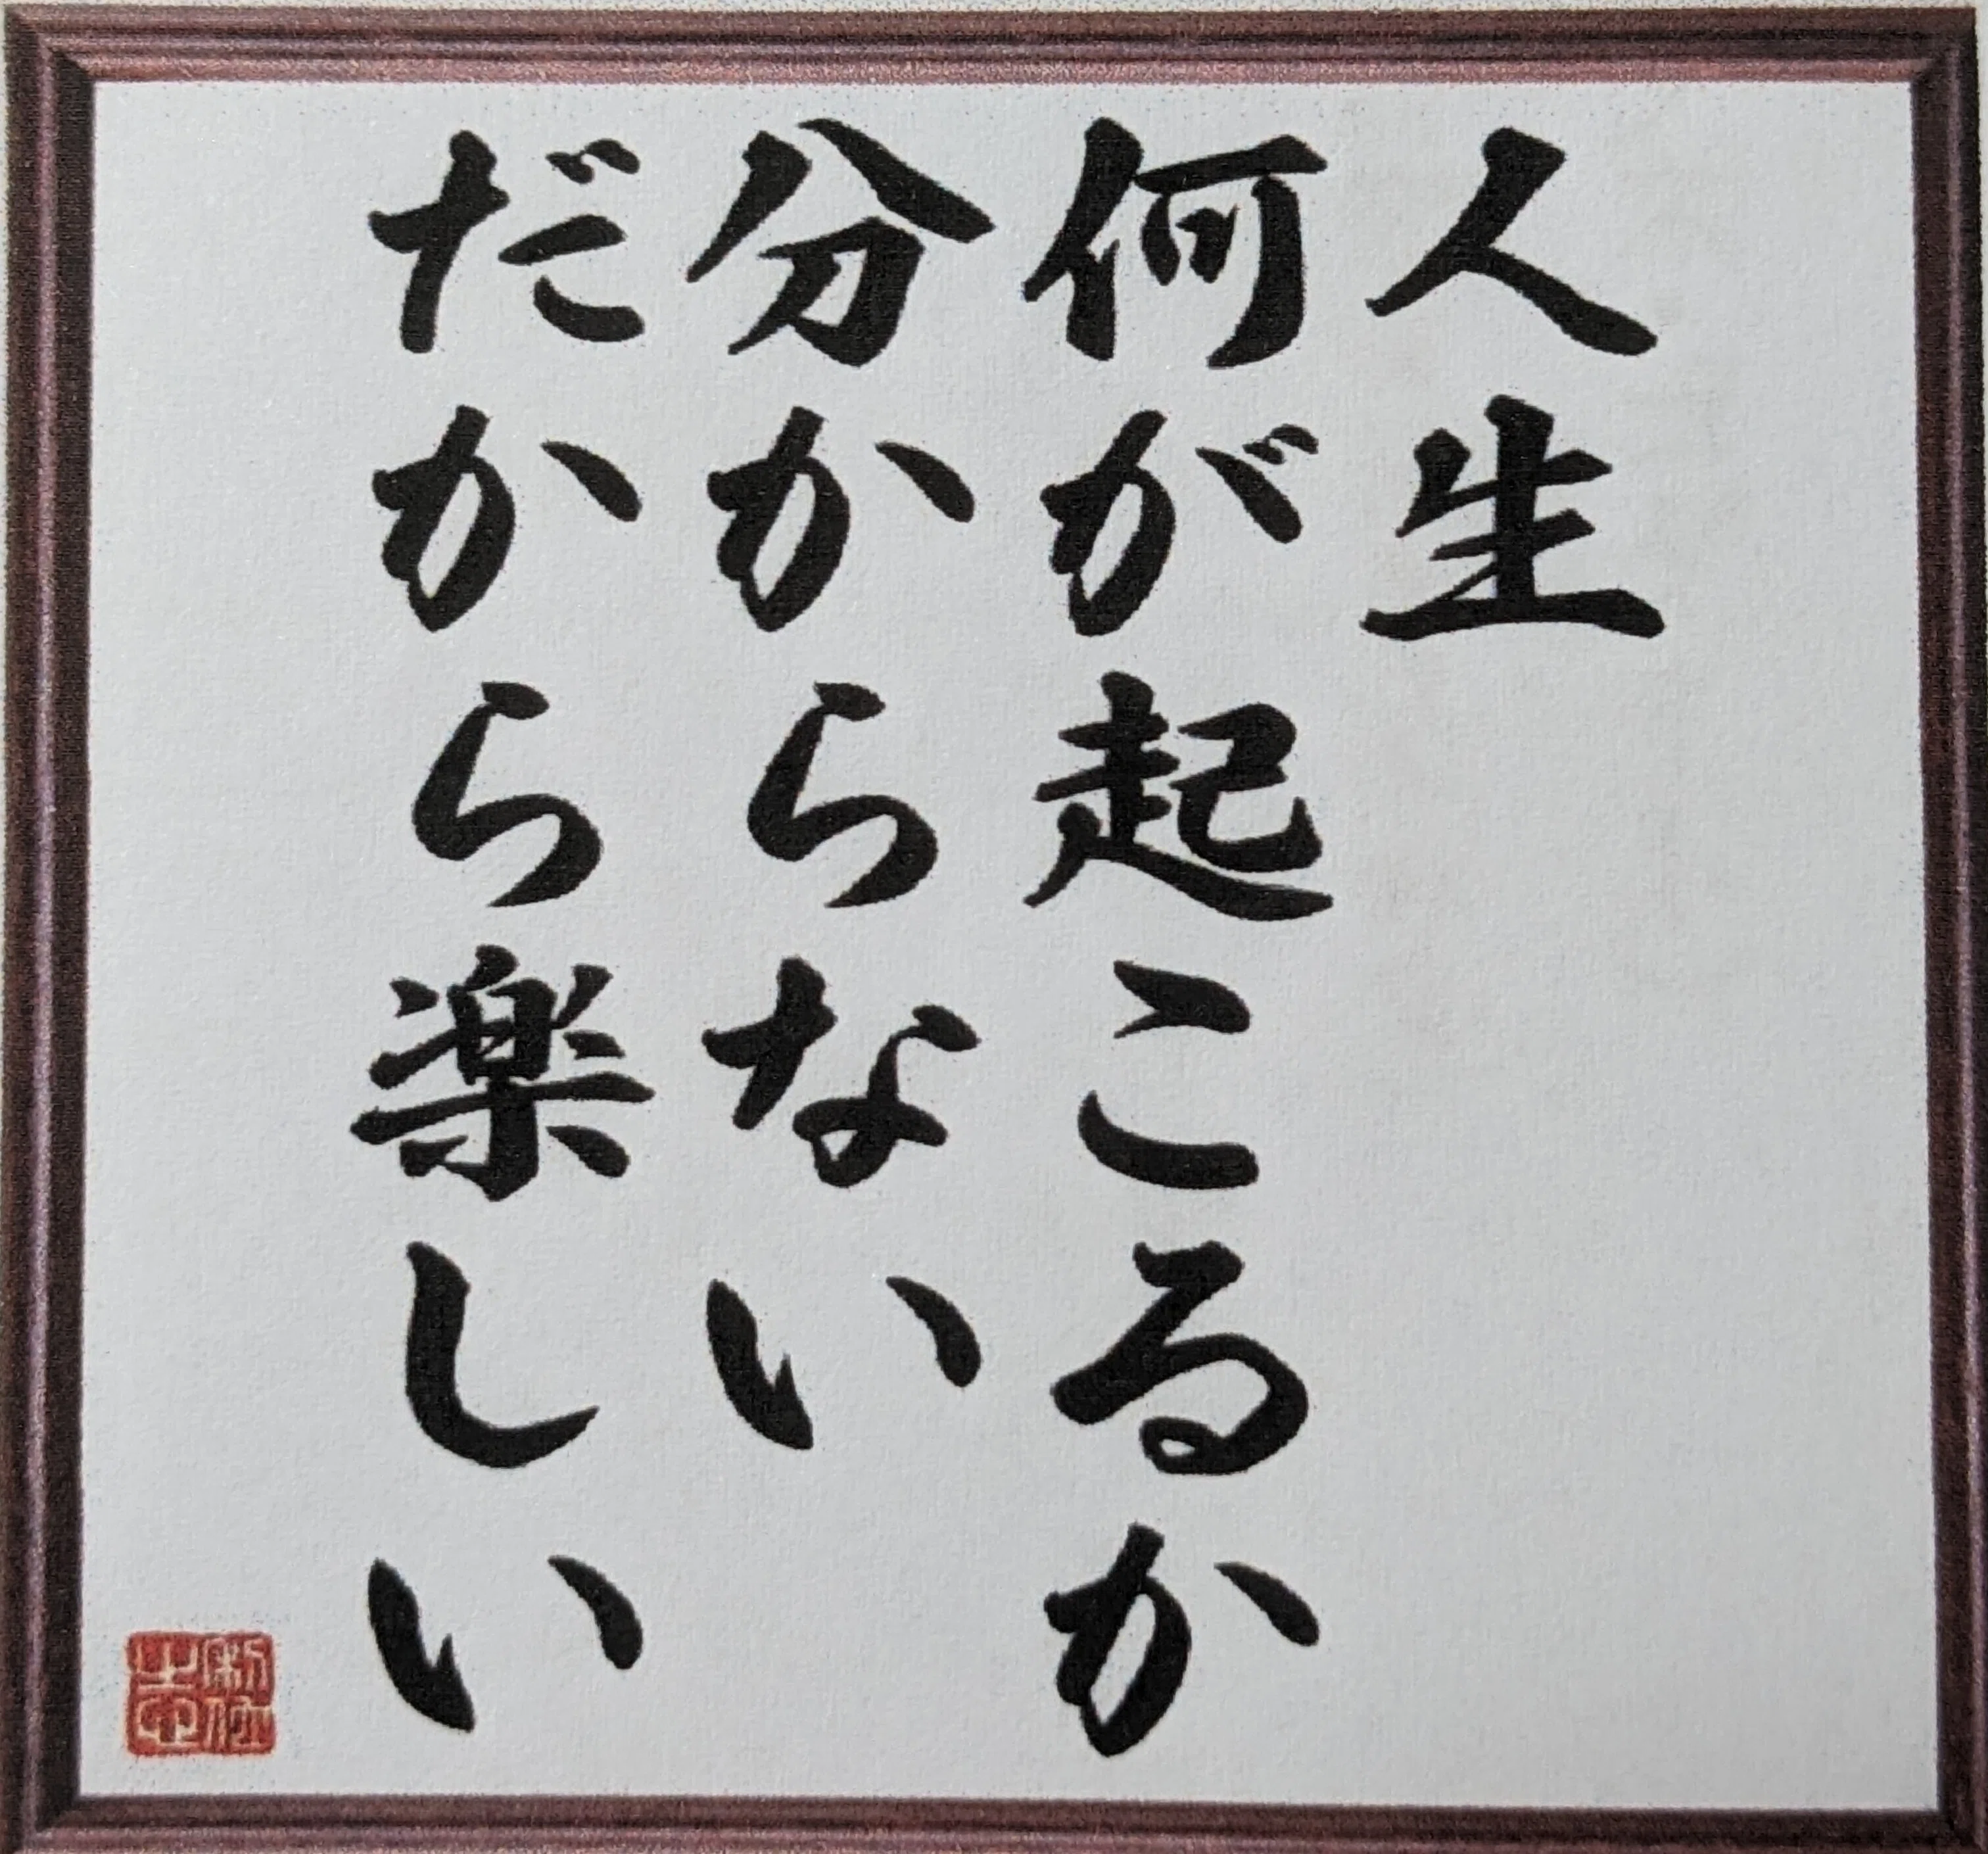 人生
何が起こるか
分からない
だから楽しい